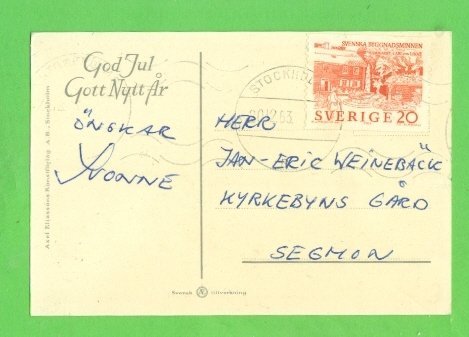 God Jul
Gott Nytt År
ÖNSKAR
YVONNE
Axel Eliassons Konstförlag A.B., Stockholm
Svensk tillverkning
SVENSKA BYGGNADSMINNEN
SVERIGE 20
STOCKHOL
HERR
JAN-ERIC WEINEBÄCK
KYRKEBYNS GÅRD
SEGMON